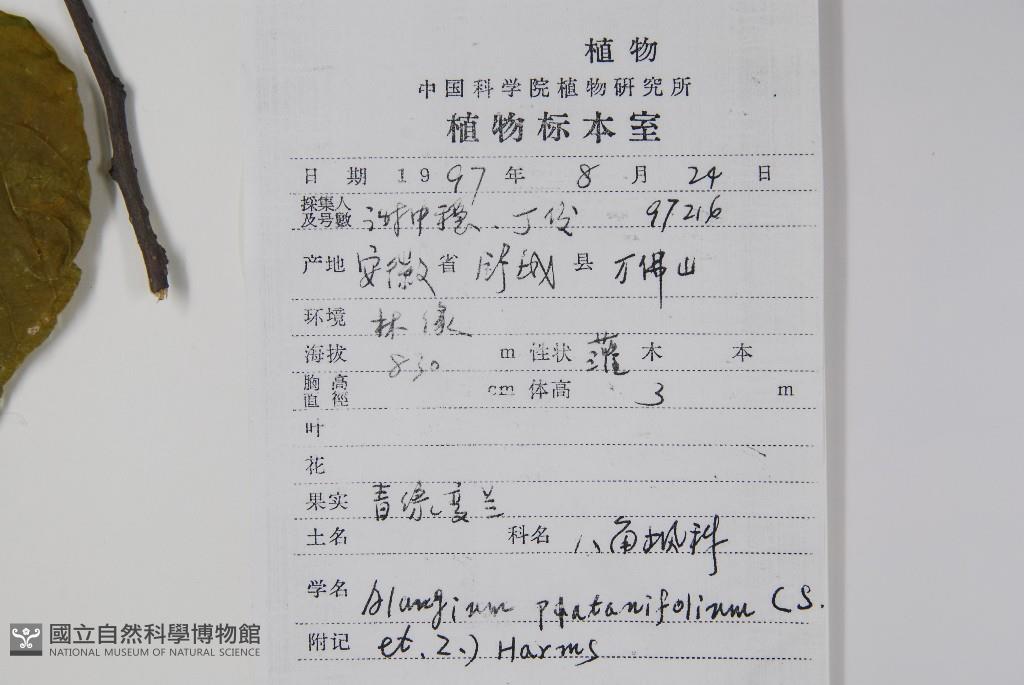 植物
中国科学院植物研究所
植物标本室
日期 1997年 8月 24日
採集人及号數 谢中稳、丁佐 97216
产地 安徽省 舒城县 万佛山
环境 林缘
海拔 830 m 性状 灌木 本
胸高直徑 cm 体高 3 m
叶
花
果实 青绿变兰
土名 科名 八角枫科
学名 Alangium platanifolium (S.
附记 et. Z.) Harms
國立自然科學博物館
NATIONAL MUSEUM OF NATURAL SCIENCE